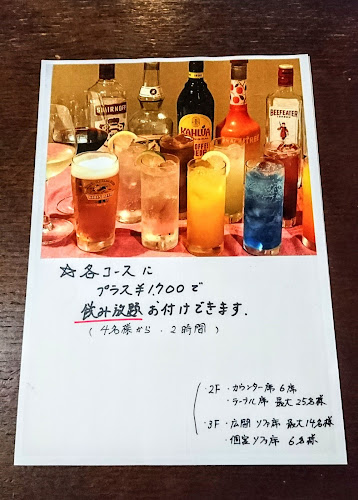 SMIRNOFF
KAHLÚA
BEEFEATER
KIRIN
☆ 各コースに
プラス¥1,700で
飲み放題お付けできます.
(4名様から・2時間)
・2F・カウンター席 6席
・テーブル席 最大25名様
・3F・広間ソファ席 最大14名様
・個室ソファ席 6名様